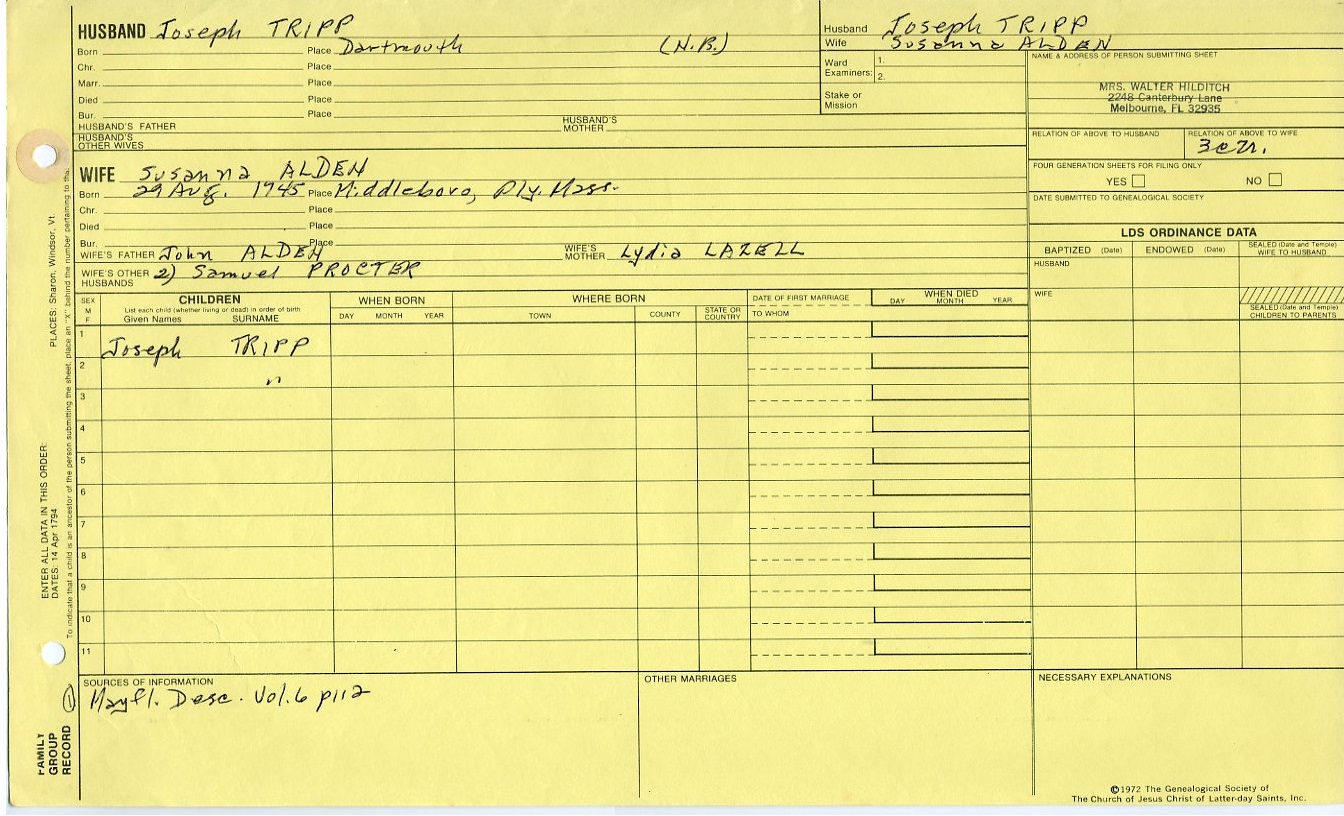 HUSBAND Joseph TRIPP
Born Place Dartmouth (N.B.)
Chr. Place
Marr. Place
Died Place
Bur. Place
HUSBAND'S FATHER HUSBAND'S MOTHER
HUSBAND'S OTHER WIVES
Husband Joseph TRIPP
Wife Susanna ALDEN
Ward Examiners: 1.
2.
Stake or Mission
NAME & ADDRESS OF PERSON SUBMITTING SHEET
MRS. WALTER HILDITCH
2248 Canterbury Lane
Melbourne, FL 32935
RELATION OF ABOVE TO HUSBAND RELATION OF ABOVE TO WIFE
FOUR GENERATION SHEETS FOR FILING ONLY
YES NO
DATE SUBMITTED TO GENEALOGICAL SOCIETY
WIFE Susanna ALDEN
Born 29 Aug. 1945 Place Middleboro, Ply. Mass.
Chr. Place
Died Place
Bur. Place
WIFE'S FATHER John ALDEN WIFE'S MOTHER Lydia LAZELL
WIFE'S OTHER HUSBANDS 2) Samuel PROCTER
LDS ORDINANCE DATA
BAPTIZED (Date) ENDOWED (Date) SEALED (Date and Temple) WIFE TO HUSBAND
HUSBAND
WIFE
SEALED (Date and Temple) CHILDREN TO PARENTS
SEX M F
CHILDREN
List each child (whether living or dead) in order of birth
Given Names SURNAME
WHEN BORN
DAY MONTH YEAR
WHERE BORN
TOWN COUNTY STATE OR COUNTRY
DATE OF FIRST MARRIAGE
TO WHOM
WHEN DIED
DAY MONTH YEAR
1 Joseph TRIPP
2 "
3
4
5
6
7
8
9
10
11
SOURCES OF INFORMATION
Mayfl. Desc. Vol. 6 p112
OTHER MARRIAGES
NECESSARY EXPLANATIONS
©1972 The Genealogical Society of
The Church of Jesus Christ of Latter-day Saints, Inc.
PLACES: Sharon, Windsor, Vt.
To indicate that a child is an ancestor of the person submitting the sheet, place an "X" behind the number pertaining to tha
ENTER ALL DATA IN THIS ORDER:
DATES: 14 Apr 1794
FAMILY
GROUP
RECORD
1